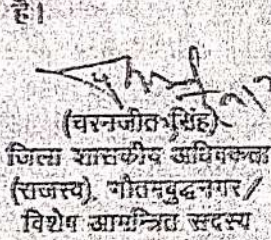 है।
(चरनजीत सिंह)
जिला शासकीय अधिवक्ता
(राजस्व) गौतमबुद्धनगर/
विशेष आमन्त्रित सदस्य